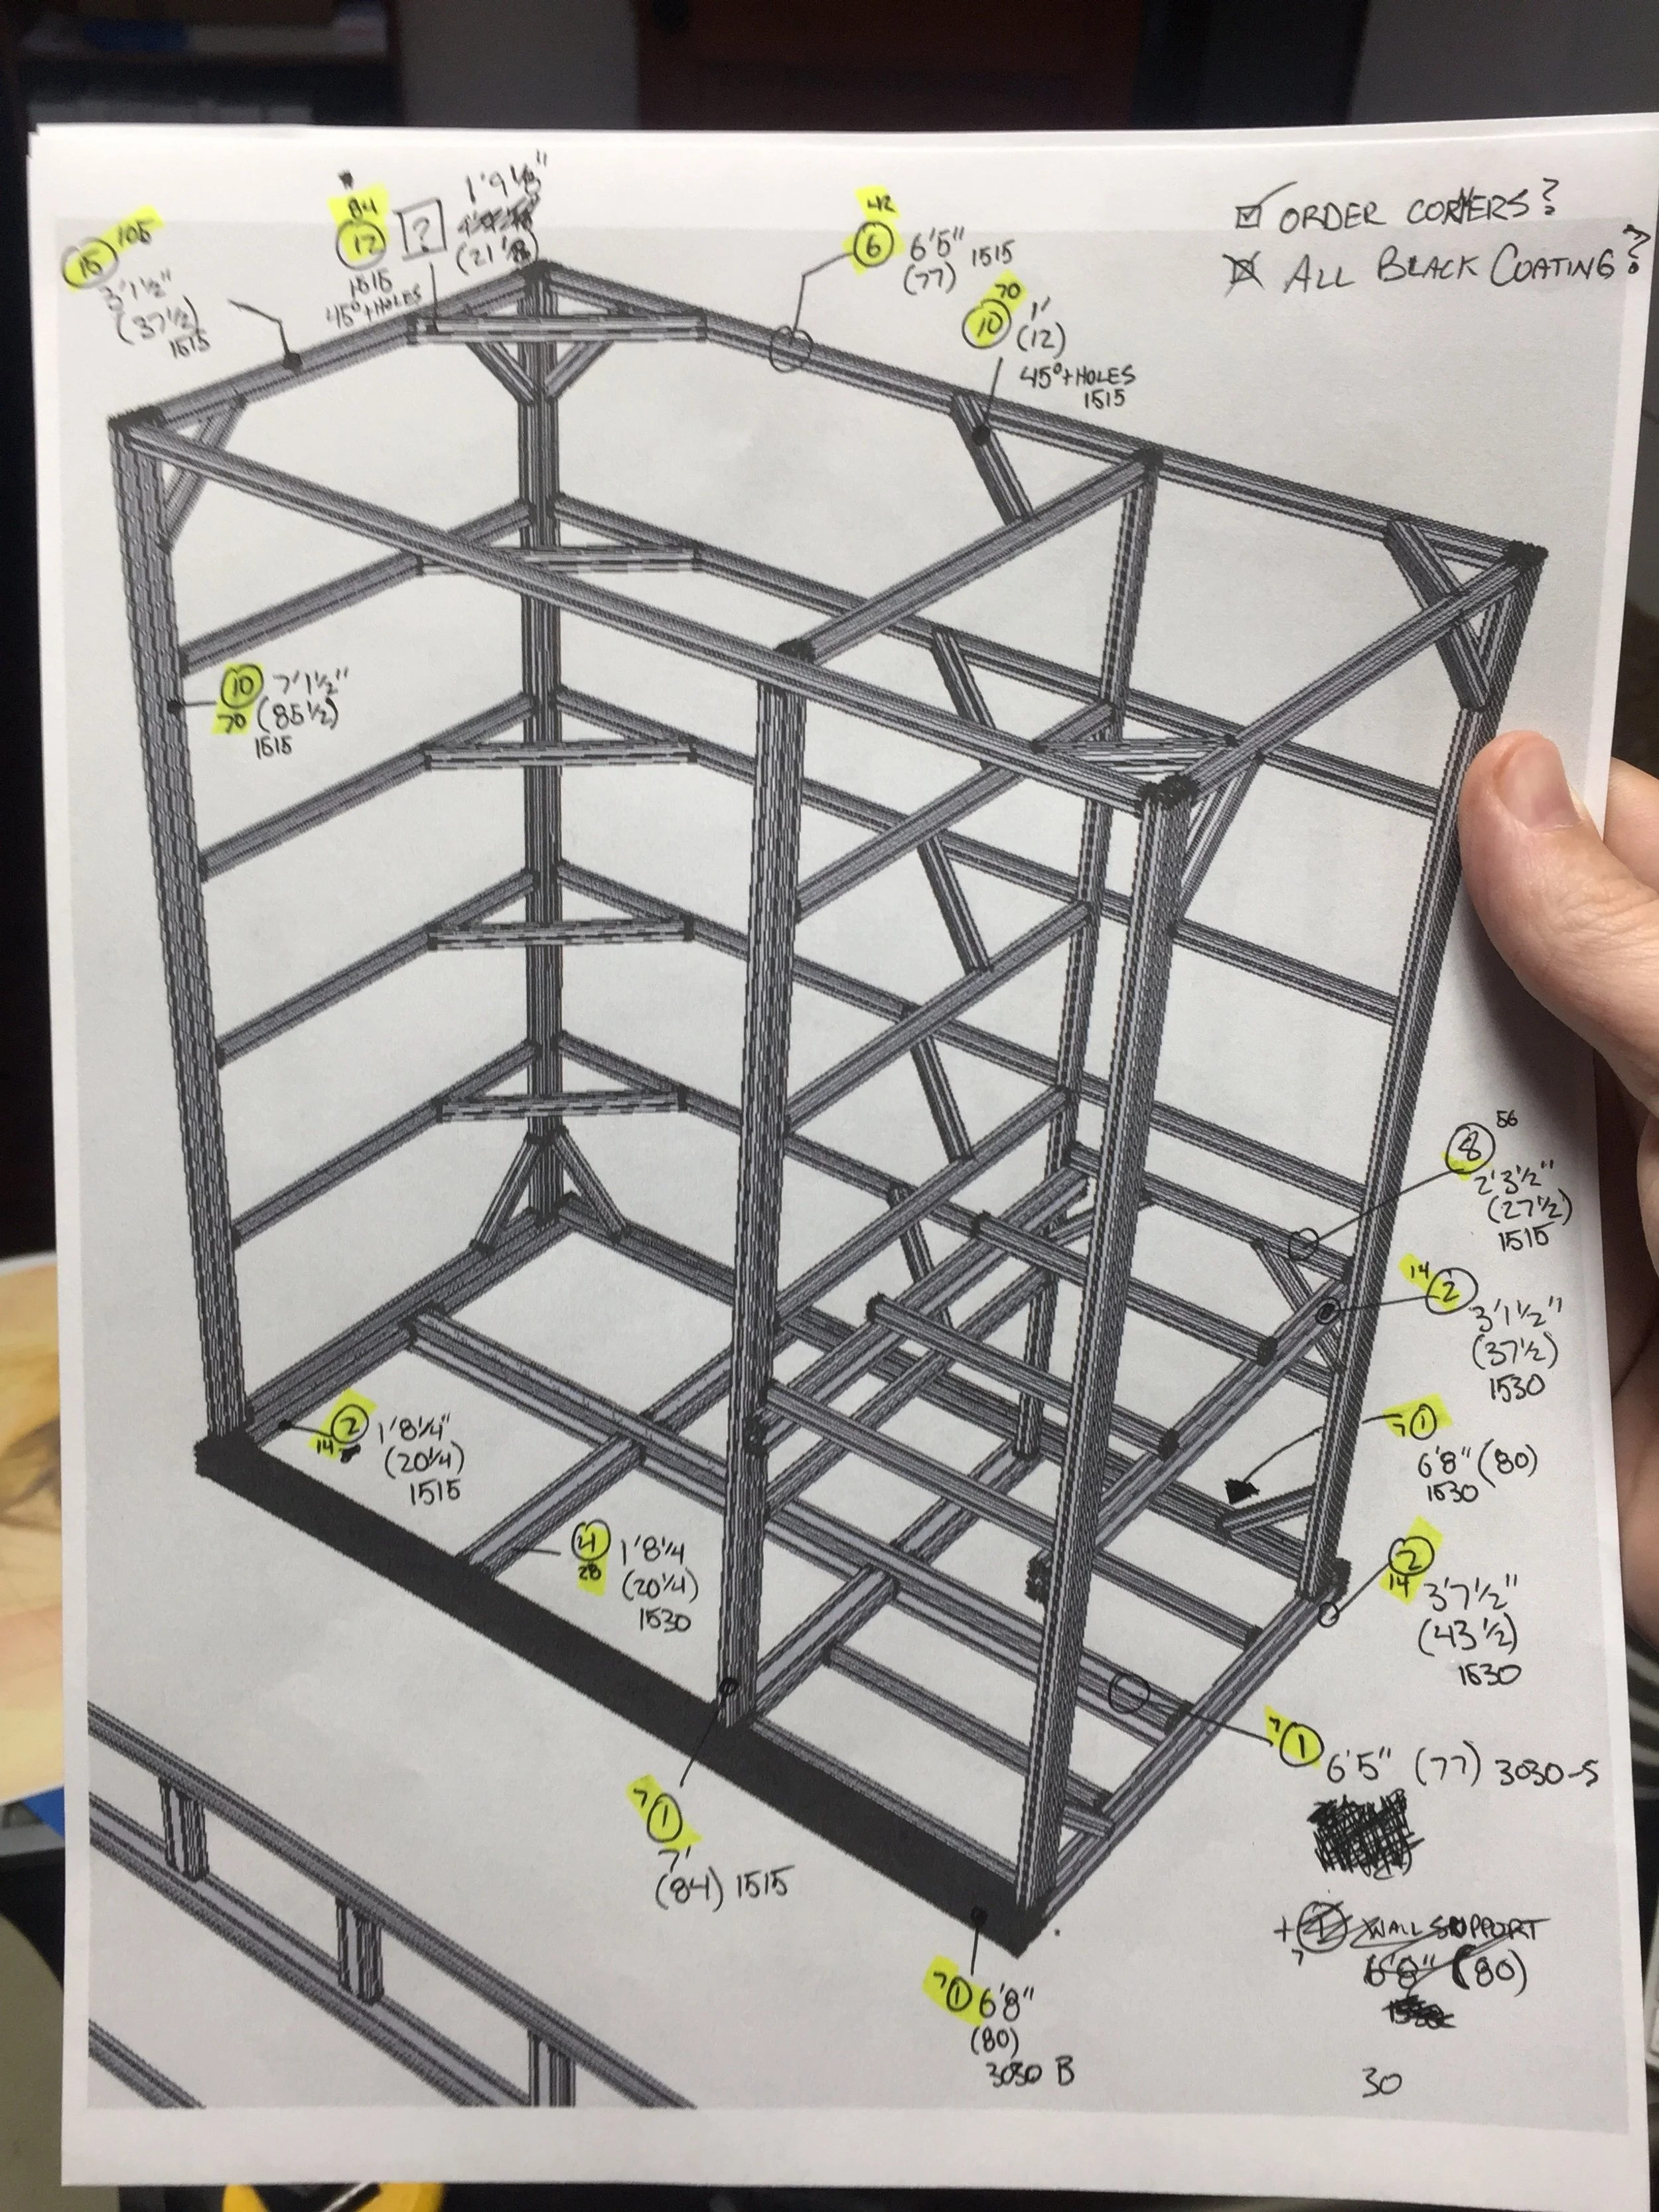 ☑ ORDER CORNERS?
☒ ALL BLACK COATING?
15 105
3'1½"
(37½)
1515
84
12 ? 1'9⅛"
(21⅛)
1515
45°+HOLES
42
6 6'5" 1515
(77)
70
10 1'
(12)
45°+HOLES
1515
10 7'1½"
70 (85½)
1515
8 56
2'3½"
(27½)
1515
14 2
3'1½"
(37½)
1530
7 1
6'8" (80)
1530
2
14 3'7½"
(43½)
1530
2 1'8¼"
14 (20¼)
1515
4 1'8¼
28 (20¼)
1530
7 1
6'5" (77) 3030-S
7 1
7'
(84) 1515
+ 1 WALL SUPPORT
7 6'8" (80)
7 1 6'8"
(80)
3030 B
30